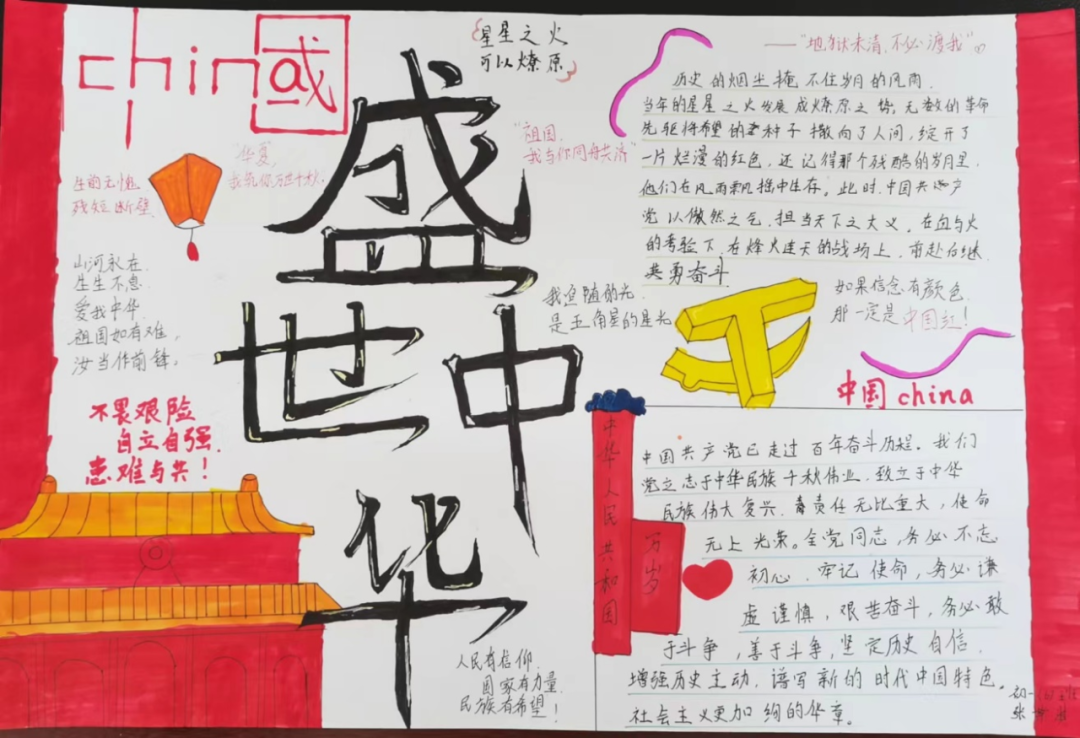 china
或
星星之火
可以燎原
盛世中华
"华夏,
"祖国,
我与你同舟共济"
生的无愧
残短断壁
山河永在
生生不息
爱我中华
祖国如有难,
汝当作前锋。
不畏艰险
自立自强
患难与共!
——"地狱未清,不必渡我"
历史的烟尘掩不住岁月的风雨
当年的星星之火发展成燎原之势,无数的革命
先驱将希望的种子撒向了人间,绽开了
一片烂漫的红色,还记得那个残酷的岁月里,
他们在风雨飘摇中生存。此时,中国共产
党以傲然之气,担当天下之大义。在血与火
的考验下,在烽火连天的战场上,前赴后继
英勇奋斗
我追随的光
是五角星的星光
如果信念有颜色
那一定是中国红!
中国china
中华人民共和国
万岁
中国共产党已走过百年奋斗历程。我们
党立志于中华民族千秋伟业,致立于中华
民族伟大复兴,责任无比重大,使命
无上光荣。全党同志,务必不忘
初心、牢记使命,务必谦
虚谨慎,艰苦奋斗,务必敢
于斗争,善于斗争,坚定历史自信,
增强历史主动,谱写新的时代中国特色
社会主义更加绚的华章。
人民有信仰
国家有力量
民族有希望!